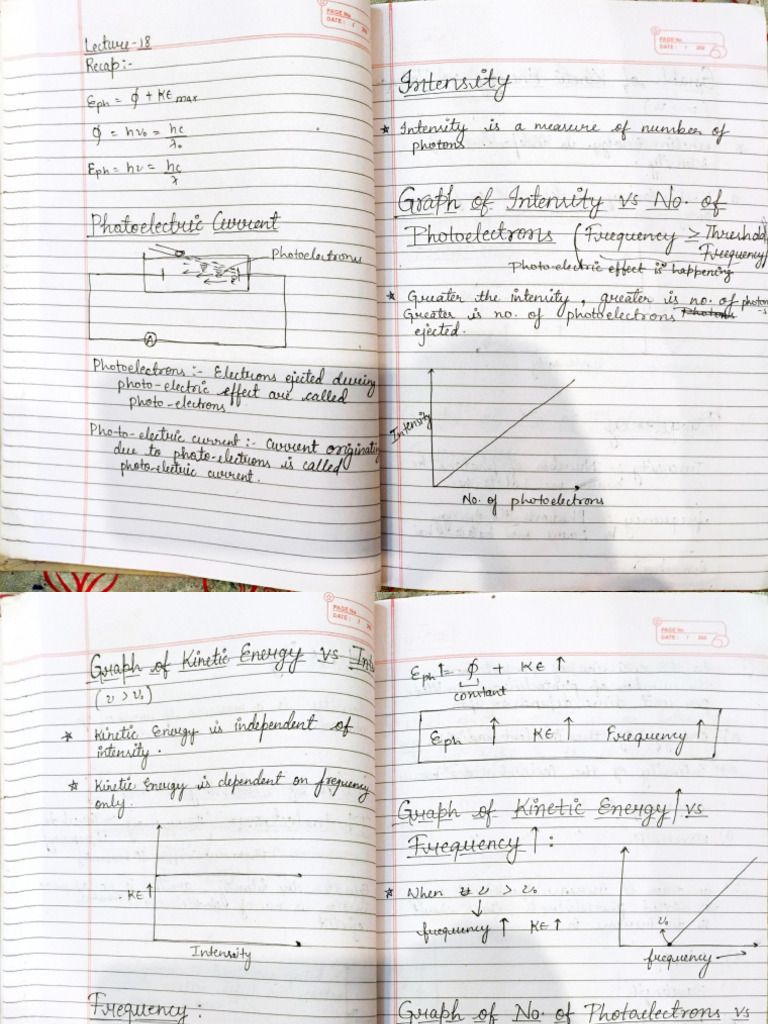 PAGE No.
DATE: / 202
Lecture-18
Recap:-
Eph = ϕ + KE max
ϕ = hν₀ = hc/λ₀
Eph = hν = hc/λ
Photoelectric Current
Photoelectrons
A
Photoelectrons :- Electrons ejected during
photo-electric effect are called
photo-electrons
Pho-to-electric current :- Current originating
due to photo-electrons is called
photo-electric current.
PAGE No.
DATE: / 202
Intensity
★ Intensity is a measure of number of
photons
Graph of Intensity vs No. of
Photoelectrons (Frequency ≥ Threshold
Frequency)
Photo-electric effect is happening
★ Greater the intensity, greater is no. of photon
-s
Greater is no. of photoelectrons
ejected.
Intensity
No. of photoelectrons
PAGE No.
DATE: / 202
Graph of Kinetic Energy vs Int
(ν > ν₀)
★ Kinetic Energy is independent of
intensity.
★ Kinetic Energy is dependent on frequency
only.
KE↑
Intensity
Frequency :
PAGE No.
DATE: / 202
Eph↑ = ϕ + KE ↑
constant
Eph ↑ KE ↑ Frequency ↑
Graph of Kinetic Energy↑ vs
Frequency ↑ :
★ When ν > ν₀
↓
frequency ↑ KE ↑
ν₀
frequency →
Graph of No. of Photoelectrons vs